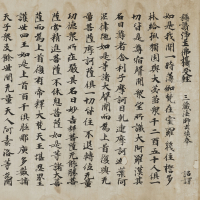 稱讚淨土佛攝受經
三藏法師玄奘奉 詔譯
如是我聞一時薄伽梵在室羅筏住誓多
林給孤獨園與大苾芻眾千二百五十人俱
一切皆是尊宿聲聞眾望所識大阿羅漢其
名曰尊者舍利子摩訶目犍連摩訶迦葉阿
泥律陀如是等諸大聲聞而為上首復與無
量菩薩摩訶薩俱一切皆住不退轉位無量
功德眾所莊嚴其名曰妙吉祥菩薩無能勝菩
薩常精進菩薩不休息菩薩如是等諸大菩
薩而為上首復有帝釋大梵天王堪忍界主
護世四王如是上首百千俱胝那庾多數諸
天子眾及餘世間無量天人阿素洛等為聞